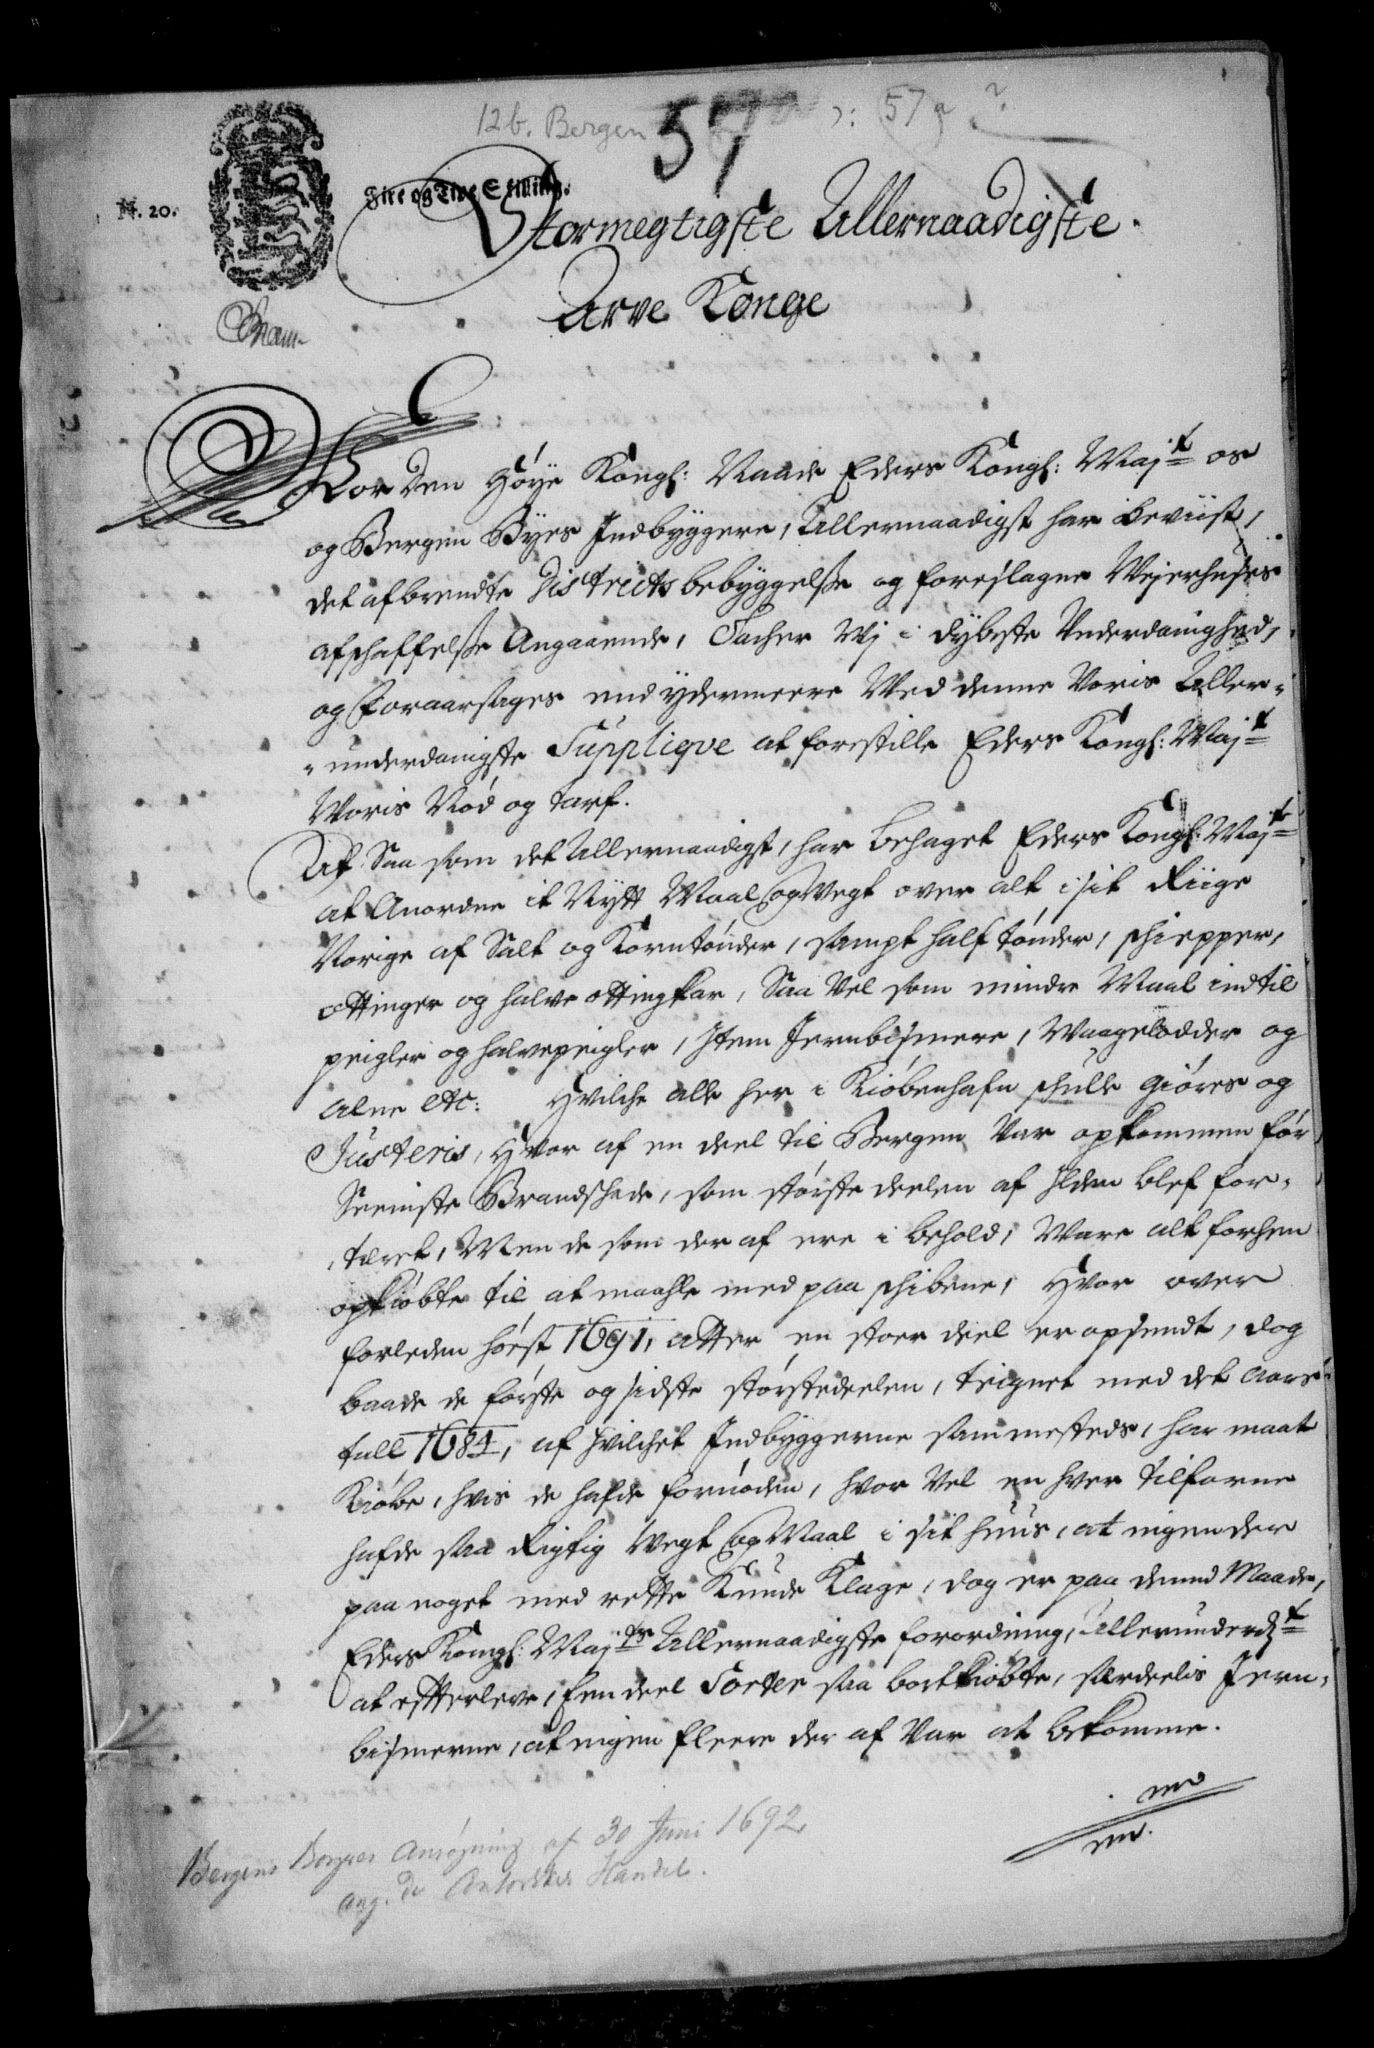 12b. Bergen 57 ɔ: 57a ?
N. 20.
Fire og Tive Skilling.
Stormegtigste Allernaadigste
Arve Konge
For den Høÿe Kongl: Naade Eders Kongl: Majt os
og Bergen Byes Indbyggere, Allernaadigst har beviist,
det afbrendte Districts bebyggelsse og foreslagne Vejerhuses
afschaffelsse Angaaende, Tacher Wj i dybeste Underdanighed,
og foraarsages end ÿdermeere Ved denne Voris Aller-
-underdanigste Suppliqve at forestille Eders Kongl: Majt
Voris Nød og tarf.
At Saa som det Allernaadigst, har behaget Eders Kongl: Majt
at Anordne it Nytt Maal og Vegt over alt i sit Riige
Norige af Salt og Korntønder, sampt half tønder, schiepper,
Ottinger og halve ottingkar, Saa vel som mindre Maal indtil
peigler og halvepeigler, Item Jernbismere, Waagelodder og
Alne etc: Hvilche alle her i Kiøbenhafn schulle giøres og
Justeris, Hvor af en deel til Bergen var opkommen før
Seeniste Brandschade, som største deelen af Ilden blef for-
tæret, Men de som der af ere i behold, Ware alt forhen
opkiøbte til at maahle med paa schibene, Hvor over
forleden høst 1691, atter en stoer deel er opsendt, dog
baade de første og sidste størstedeelen, teignet med det Aars-
tall 1684, af hvilchet Indbyggerne sammesteds, har maat
Kiøbe, hvis de hafde fornøden, hvor vel en hver tilforne
hafde saa Rigtig Vegt og Maal i sit huus, at ingen der
paa noget med rette Kunde Klage, dog er paa dend Maade,
Eders Kongl: Majts Allernaadigste forordning, Allerunderdt
at effterleve, Een deel Sorter saa bortkiøbte, særdeelis Jern-
bismerne, at ingen fleere der af Var at bekomme.
Bergens Borgeres Ansøgning af 30 Juni 1692
ang. de Handel.